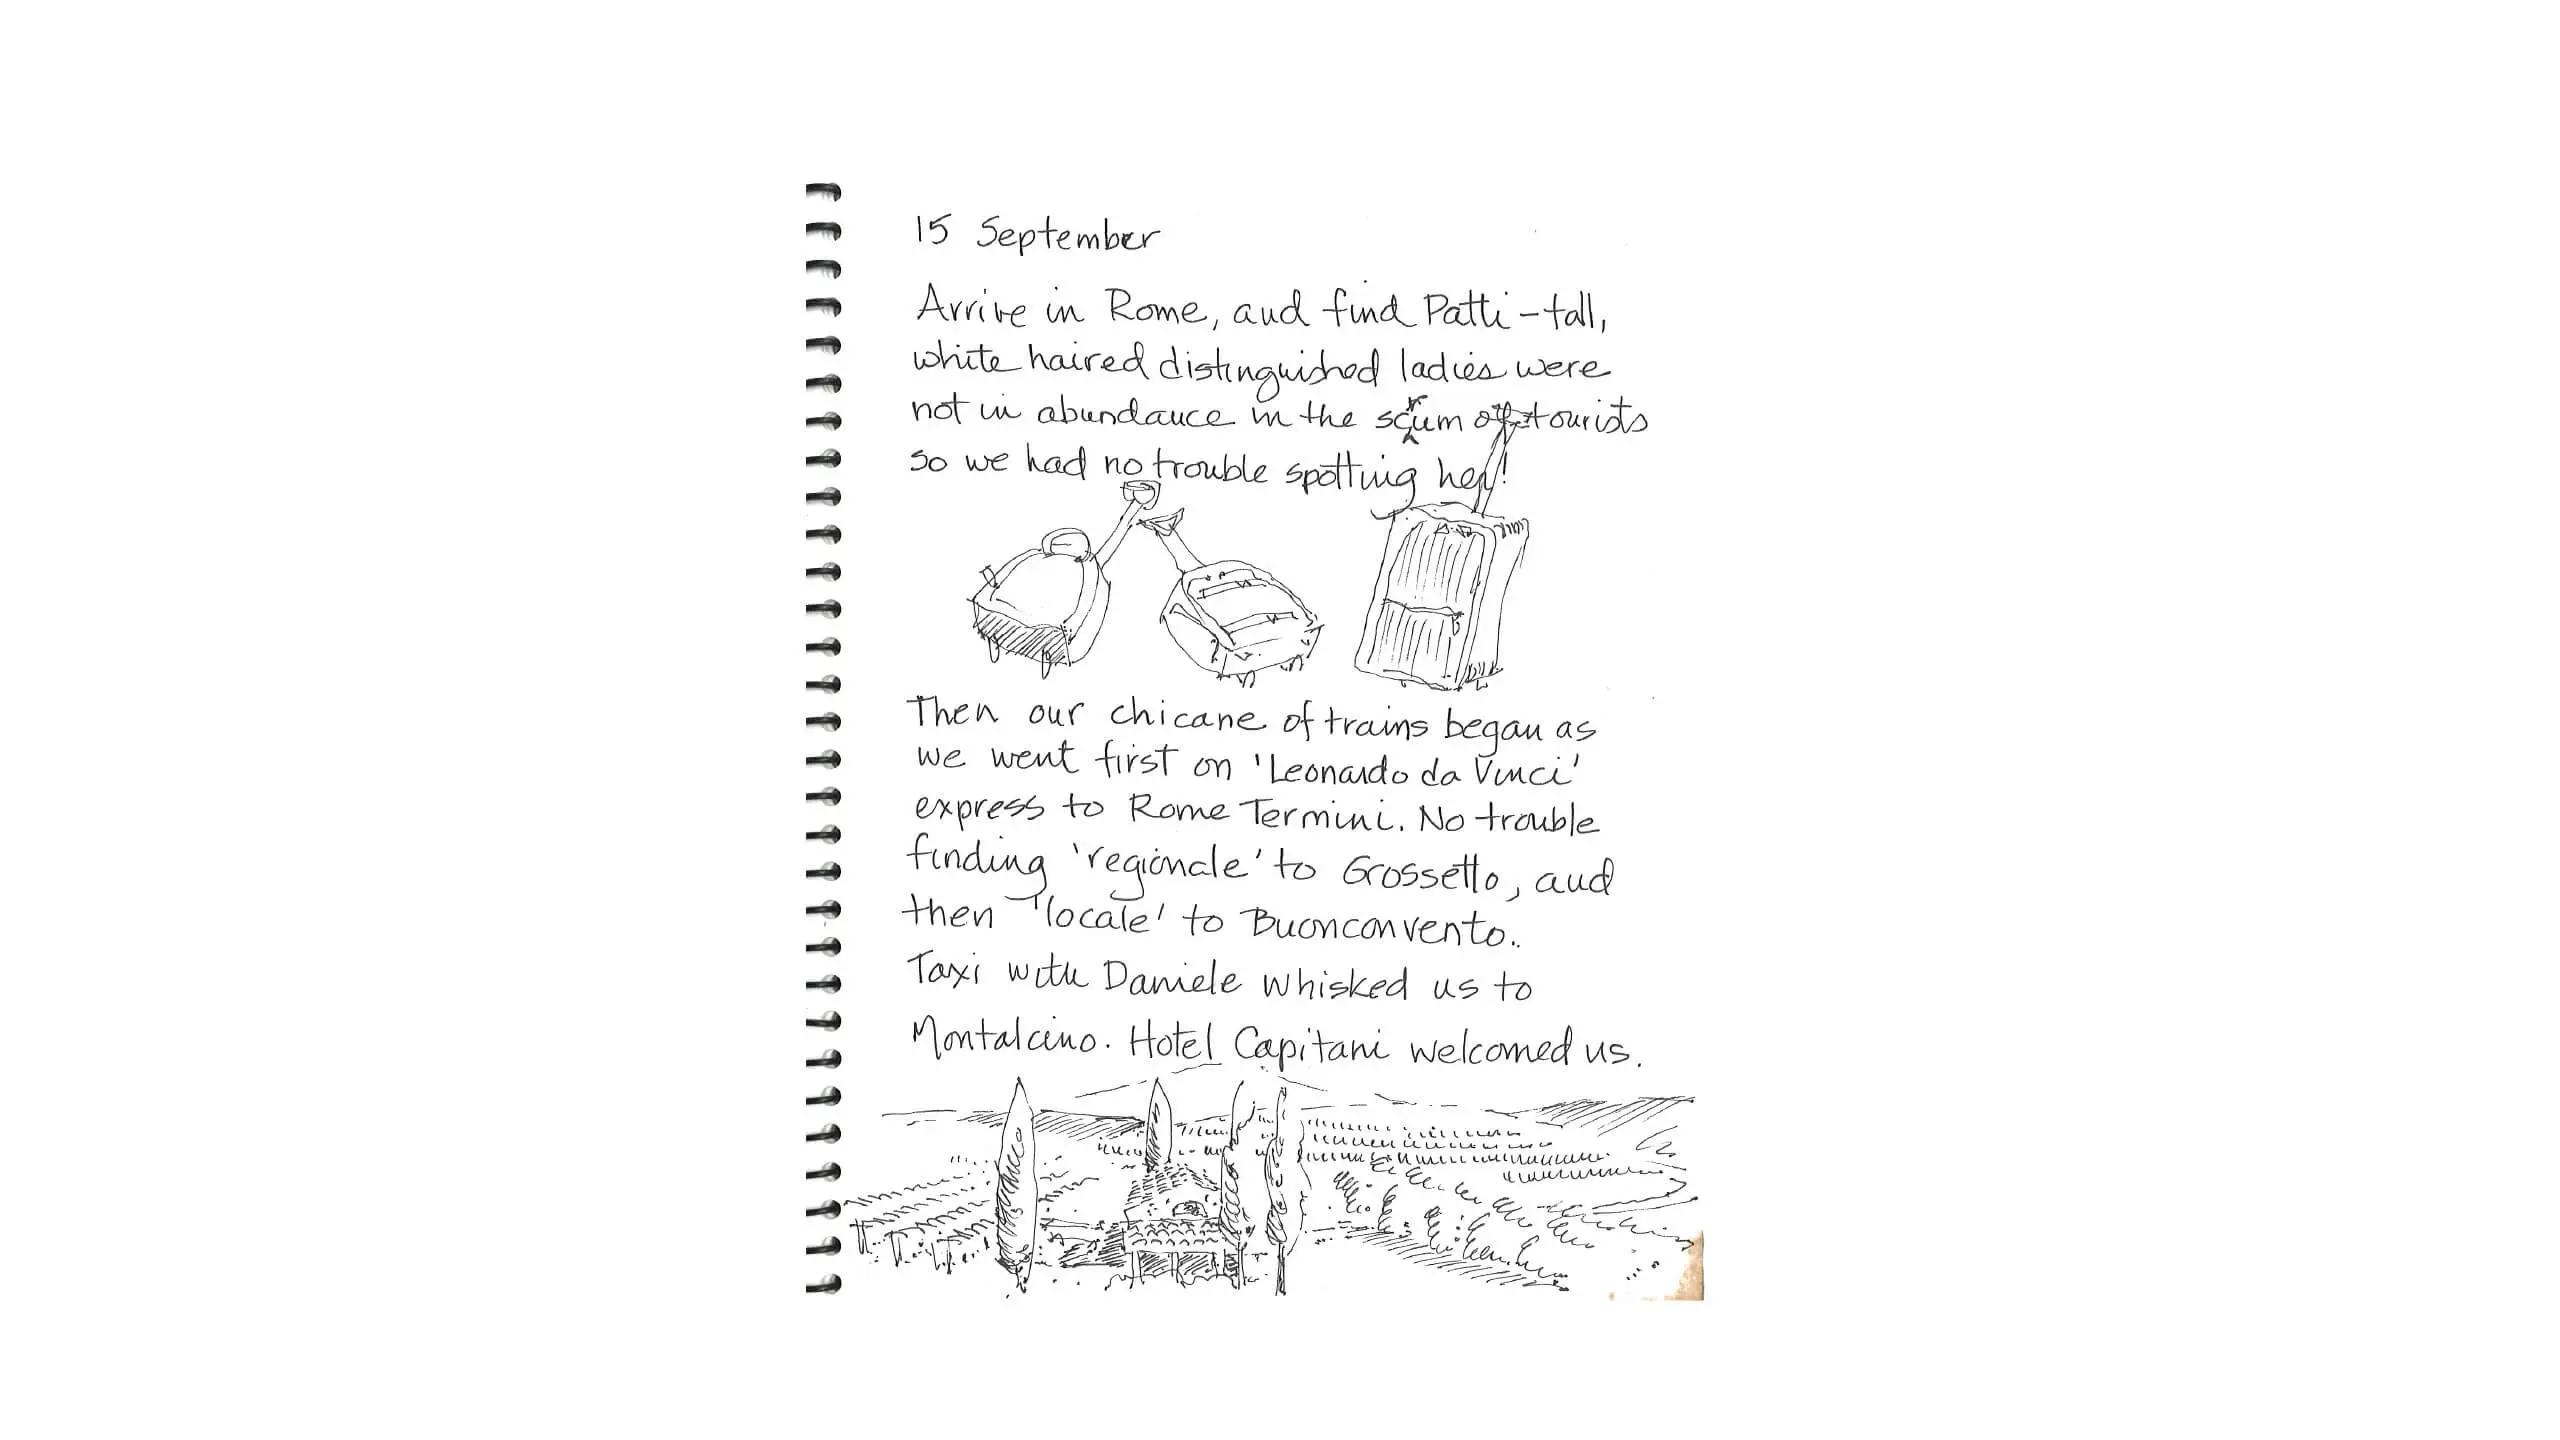 15 September
Arrive in Rome, and find Patti - tall,
white haired distinguished ladies were
not in abundance in the scrum of tourists
so we had no trouble spotting her!
Then our chicane of trains began as
we went first on 'Leonardo da Vinci'
express to Rome Termini. No trouble
finding 'regionale' to Grossetto, and
then 'locale' to Buonconvento.
Taxi with Daniele whisked us to
Montalcino. Hotel Capitani welcomed us.